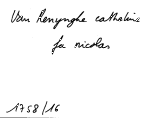 Van Renynghe cathalina
fa nicolas
1758/16